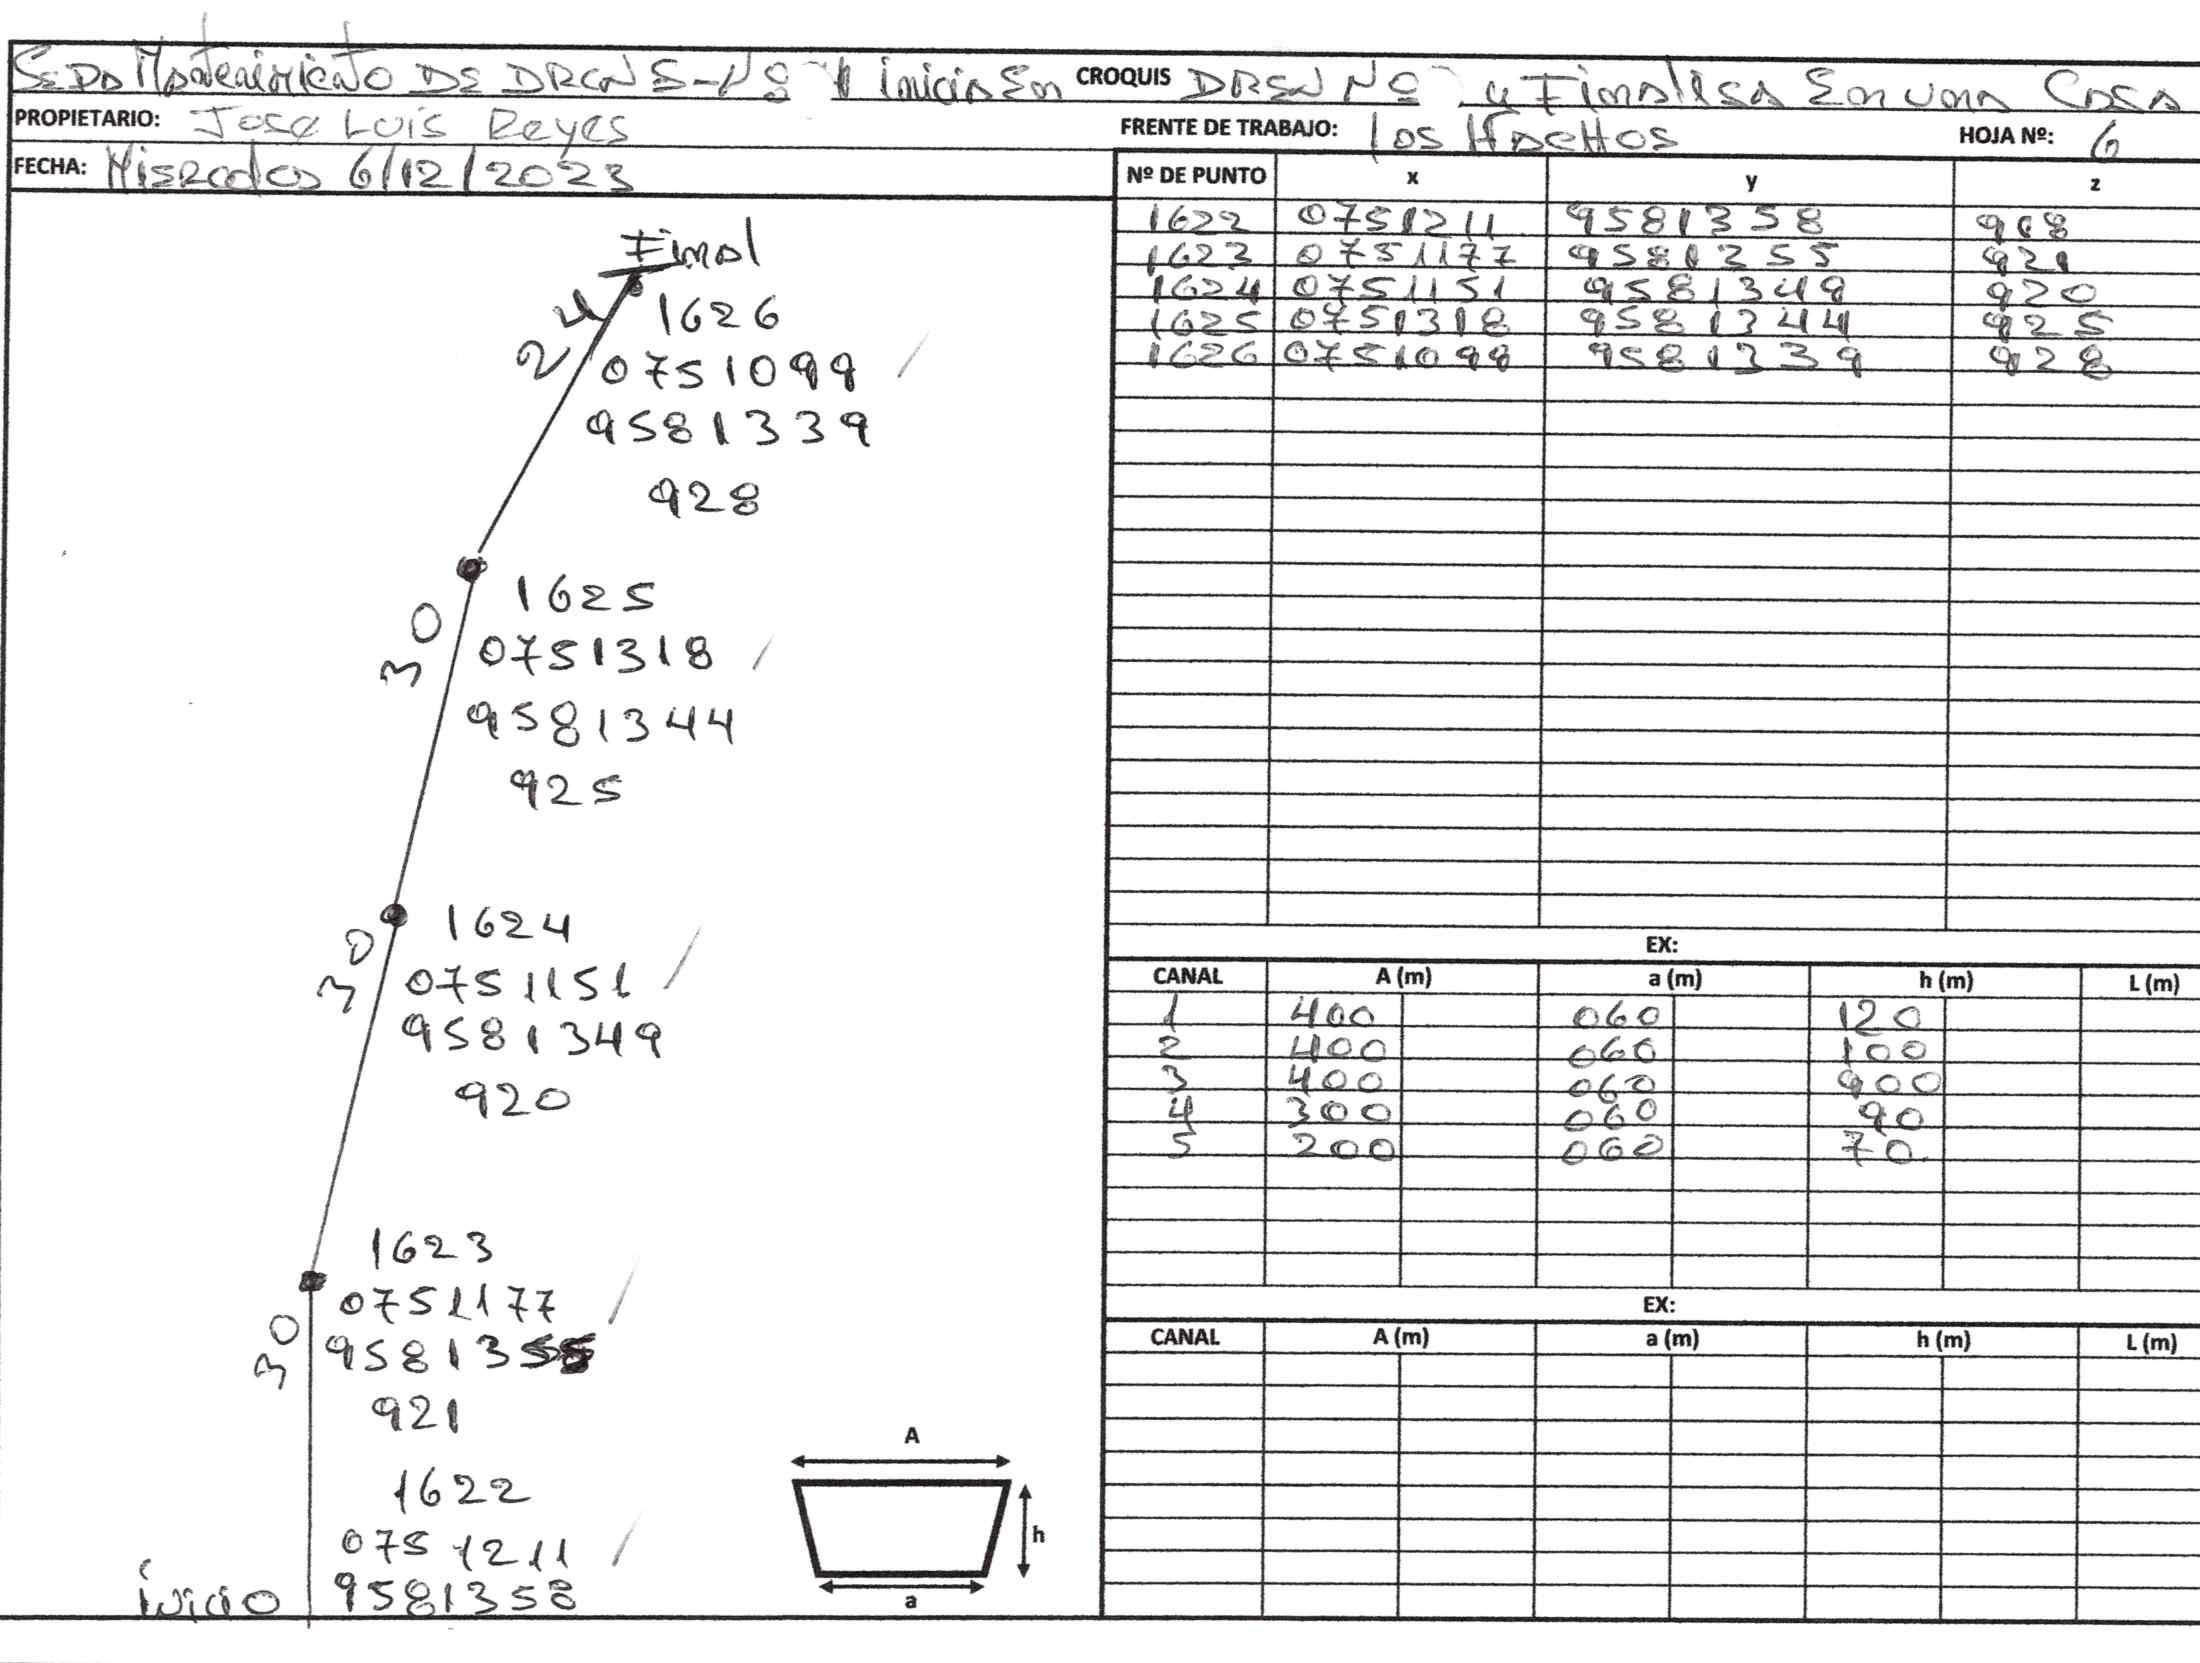 SeDa Mantenimiento DE DREN S-Nº inicia En CROQUIS DREN Nº y Finalisa En una Casa
PROPIETARIO: Jose Luis Reyes
FRENTE DE TRABAJO: Los HOJA Nº: 6
FECHA: Miercoles 6/12/2023
Nº DE PUNTO x y z
1622 0751211 9581358 918
1623 0751177 9581355 921
1624 0751151 9581349 920
1625 0751318 9581344 925
1626 0751099 9581339 928
Final
24
1626
0751099
9581339
928
1625
30
0751318
9581344
925
1624
30
0751151
9581349
920
1623
30
0751177
9581355
921
1622
0751211
inicio 9581358
A
h
a
EX:
CANAL A (m) a (m) h (m) L (m)
1 400 060 120
2 400 060 100
3 400 060 900
4 300 060 90
5 200 060 70
EX:
CANAL A (m) a (m) h (m) L (m)